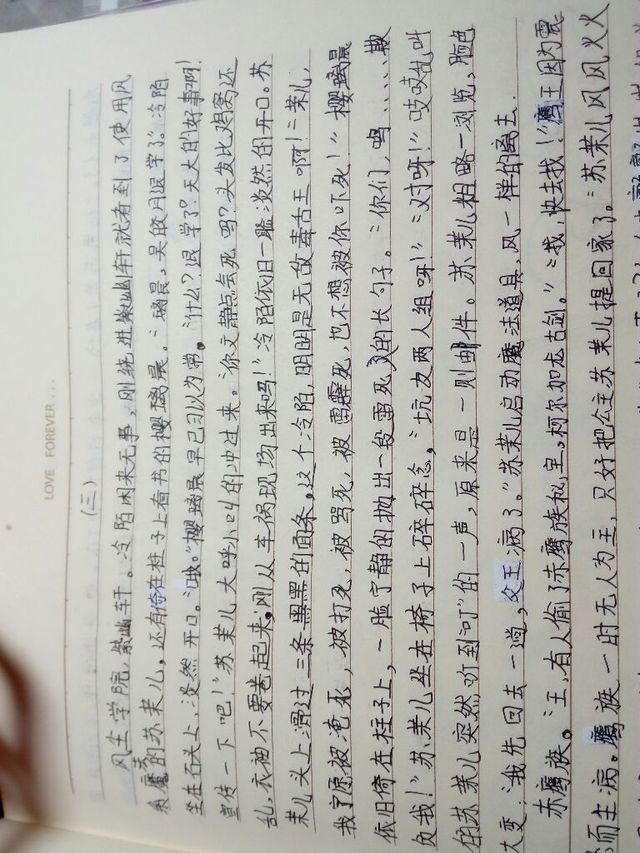 LOVE FOREVER...
(三)
风尘学院,紫幽轩。冷陌闲来无事,刚绕进紫幽轩就看到了使用风
系魔法的苏茉儿,还有倚在柱子上看书的樱璃晨。“璃晨,吴皎月退学了。”冷陌
坐在石头上,淡然开口。“哦。”樱璃晨早已习以为常。“什么?退学了?天大的好事啊!
宣传一下吧!”苏茉儿大呼小叫的冲过来。“你文静点会死吗?头发比鸡窝还
乱,衣袖不要卷起来,刚从车祸现场出来吗!”冷陌依旧一脸淡然的开口。苏
茉儿头上滑过三条黑黑的面条。这个冷陌,明明是无敌毒舌王啊!“茉儿,
我宁愿被淹死,被打死,被骂死,被雷霹死,也不想被你吓死!”樱璃晨
依旧倚在柱子上,一脸宁静的抛出一段雷死人的长句子。“你们,呜……欺
负我!”苏茉儿坐在椅子上碎碎念,“坑友两人组呀!”“对呀!”吱吱乱叫
的苏茉儿突然听到“叮”的一声,原来是一则邮件。苏茉儿粗略一浏览,脸色
大变:“我先回去一趟,父王病了。”苏茉儿启动魔法道具,风一样的离去.
赤鹰族。“王,有人偷了赤鹰族秘宝,柯尔加龙古剑。”“我,快去找!”鹰王因为震
怒而生病。鹰族一时无人为主,只好把公主苏茉儿提回家了。“苏茉儿风风火火